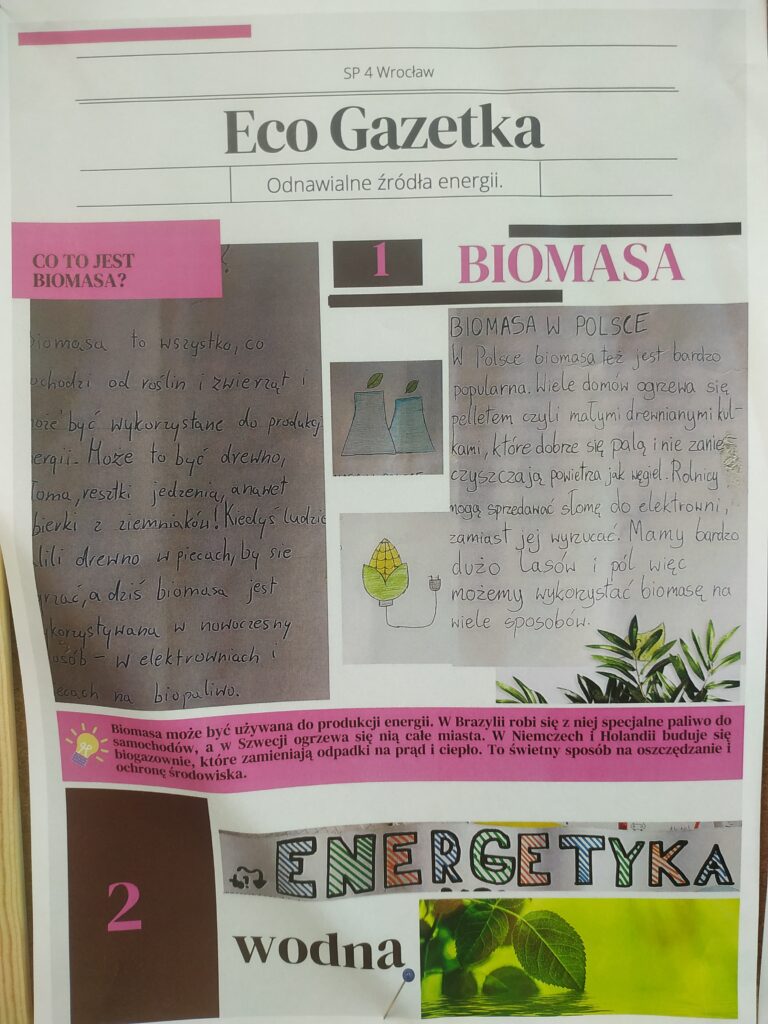 SP 4 Wrocław
Eco Gazetka
Odnawialne źródła energii.
CO TO JEST
BIOMASA?
iomasa to wszystko, co
ochodzi od roślin i zwierząt i
oże być wykorzystane do produkcj
ergii. Może to być drewno,
łoma, resztki jedzenia, a nawet
bierki z ziemniaków! Kiedyś ludzie
lili drewno w piecach, by sie
rzać, a dziś biomasa jest
ykorzystywana w nowoczesny
osób - w elektrowniach i
ecach na biopaliwo.
1
BIOMASA
BIOMASA W POLSCE
W Polsce biomasa też jest bardzo
popularna. Wiele domów ogrzewa się
pelletem czyli małymi drewnianymi kul-
kami, które dobrze się palą i nie zanie-
czyszczają powietrza jak węgiel. Rolnicy
mogą sprzedawać słomę do elektrowni,
zamiast jej wyrzucać. Mamy bardzo
dużo lasów i pól więc
możemy wykorzystać biomasę na
wiele sposobów.
Biomasa może być używana do produkcji energii. W Brazylii robi się z niej specjalne paliwo do
samochodów, a w Szwecji ogrzewa się nią całe miasta. W Niemczech i Holandii buduje się
biogazownie, które zamieniają odpadki na prąd i ciepło. To świetny sposób na oszczędzanie i
ochronę środowiska.
2
ENERGETYKA
wodna